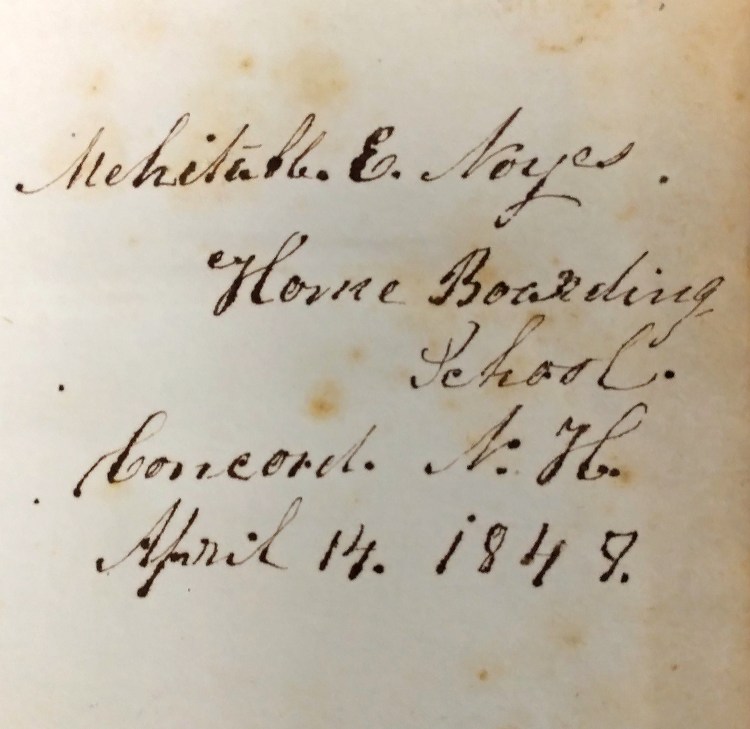 Mehitabl. E. Noyes.
Home Boarding
School.
Concord. N. H.
April 14. 1848.